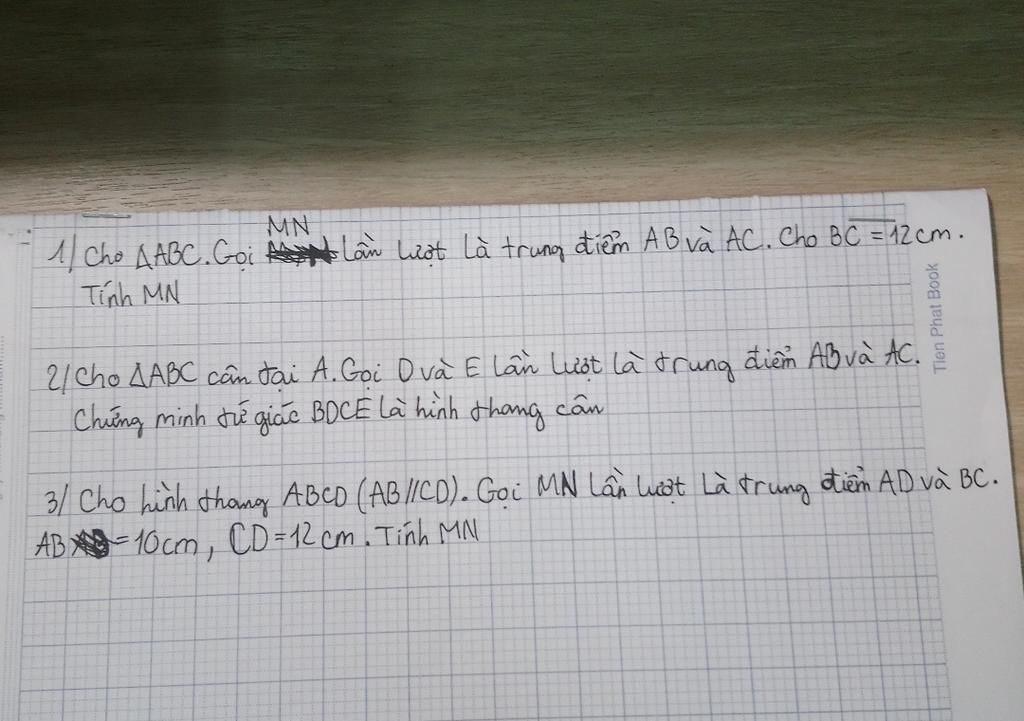 MN
1/ Cho ΔABC. Gọi lần lượt là trung điểm AB và AC. Cho BC = 12cm.
Tính MN
2/ Cho ΔABC cân tại A. Gọi D và E lần lượt là trung điểm AB và AC.
Chứng minh tứ giác BDCE là hình thang cân
3/ Cho hình thang ABCD (AB//CD). Gọi MN lần lượt là trung điểm AD và BC.
AB = 10cm, CD = 12cm. Tính MN
Tien Phat Book